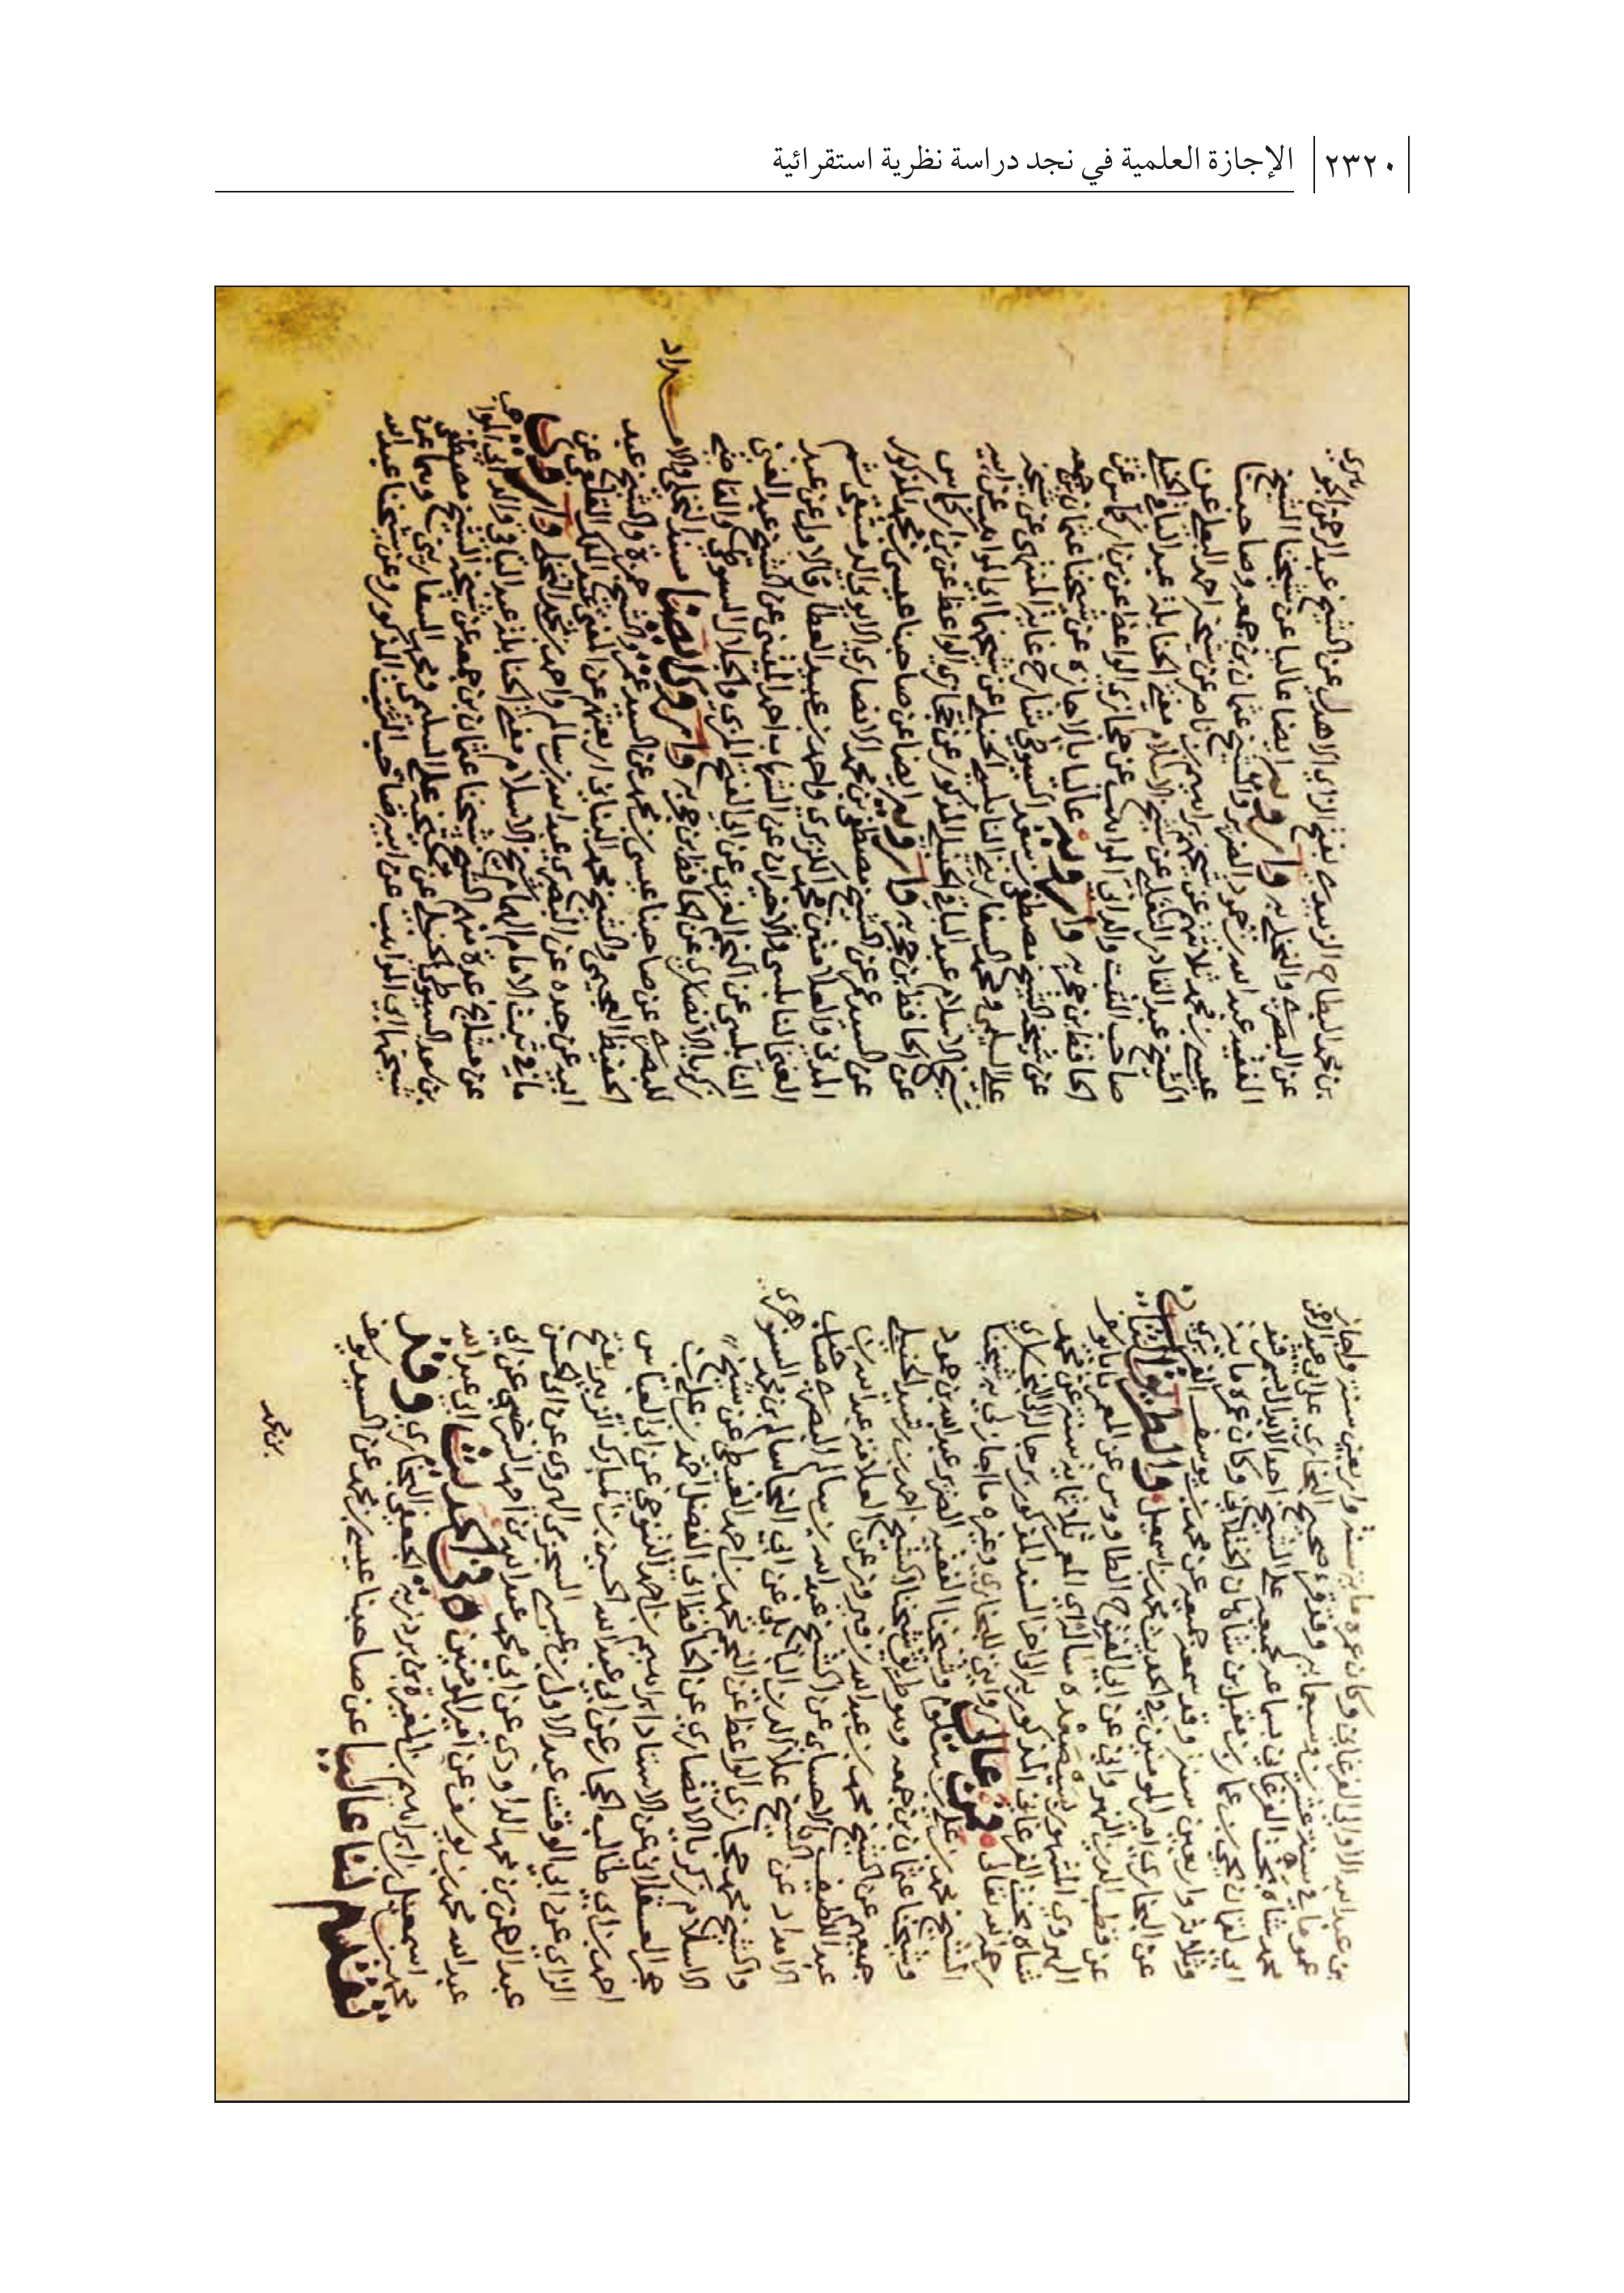 ٢٣٢٠ الإجازة العلمية في نجد دراسة نظرية استقرائية
بن عبد الله الفرغاني وكان عمره ماية سنة واربعين سنة واجاز
عموما في سنة عشرين وسبعماية وقد قرء صحيح البخاري على ابى عبد الرحمن
محمد شاه بخت الفرغاني بسماعه لجميعه على الشيخ احد الابدال بسمرقند
ابي لقمان يحيى بن عمار بن مقبل بن شاهان الختلاني وكان عمره ماية
وثلاثة واربعين سنة وقد سمعه جميعه عن محمد بن يوسف الفربري
عن البخاري امير المومنين في الحديث محمد بن اسمعيل والطريق الثاني
عن قطب الدين النهرواني عن ابي الفتوح الطاووس عن المعمر بابا يوسف
الهروي المشهور بسيصده ساله اي المعمر ثلاثماية سنة عن محمد
شاه بخت الفرغاني المذكور الى اخر السند المذكور برجاله الى البخاري
رحمه الله تعالى من عالي روايتي للبخاري وغيره ما اجازني به شيخنا
الشيخ محمد بن علي بن سلوم وشيخنا الفقيه الضرير عبد الله بن حمود
وشيخنا عثمان بن جمعه وهو طريق شيخنا الشيخ احمد بن رشيد الحنبلي
جميعهم عن الشيخ محمد بن عبد الله بن فيروز عن العلامة عبد الله بن
عبد اللطيف الاحساى عن الشيخ عبد الله بن سالم البصري صاحب
الامداد عن الشيخ علاء الدين البابلي عن ابي النجا سالم بن محمد السنهوري
والشيخ محمد حجازي الواعظ عن النجم محمد بن احمد الغيطي عن شيخ
الاسلام زكريا الانصاري عن الحافظ ابي الفضل احمد بن علي بن
حجر العسقلاني عن الاستاذ ابراهيم بن احمد التنوخي عن ابي العباس
احمد بن ابي طالب الحجار عن ابي عبد الله الحسين بن المبارك الزبيدي بفتح
الزاي عن ابي الوقت عبد الاول بن عيسى السجزي الهروي عن ابي الحسن
عبد الرحمن بن محمد الداودي عن ابي محمد عبد الله بن احمد السرخسي عن ابي
عبد الله محمد بن يوسف عن امير المومنين في الحديث ابي عبد الله
محمد بن اسمعيل بن ابراهيم بن المغيرة بن بردزبه الجعفي البخاري وقد
تقدم لنا عاليا عن صاحبنا عيسى بن محمد عن السيد يوسف
بن محمد
بن محمد البطاح الزبيدي بفتح الزاي الاهدل عن الشيخ عبد الرحمن
عن البصري والنخلي به وارويه ايضا عاليا عن شيخنا الشيخ
الفقيه عبد الله بن حمود الضرير والشيخ عثمان بن جمعه وصاحبنا
عيسى بن محمد ثلاثتهم عن شيخهم ابراهيم بن ناصر عن شيخه احمد البعلي عن
الشيخ عبد القادر التغلبي عن شيخ الاسلام مفتي الحنابلة عبد الباقي الحنبلي
صاحب الثبت والد ابي المواهب عن حجازي الواعظ عن بن اركماس عن
الحافظ بن حجر به وارويه عاليا بالاجازة عن شيخنا عثمان بن جمعه
عن شيخه الشيخ مصطفى بن سعد السيوطي شارح غاية المنتهى عن شيخه
علي السليمي ومحمد السفاريني النابلسي الحنبلي عن شيخهما ابي المواهب عن ابيه
شيخ الاسلام عبد الباقي الحنبلي المذكور عن حجازي الواعظ عن بن اركماس
عن الحافظ بن حجر به وارويه ايضا عن صاحبنا عيسى بن محمد المذكور
عن السيد عمر عن الشيخ مصطفى بن محمد الانصاري الايوبي الدمشقي ثم
المدني والعلامة محمد الكزبري واحمد بن عبيد العطار فالاول عن عبد
الغني النابلسي والاخران عن الشهاب احمد المنيني عن الشيخ عبد الغني
النابلسي عن النجم الغزي عن ابي الفتح المزي والجلال السيوطي والقاضي
زكريا الانصاري عن الحافظ بن حجر به واروي ايضا مسند النخلي والامداد
للبصري عن صاحبنا عيسى بن محمد عن السيد عمر والشيخ حمزة والشيخ عبد
الحفيظ العجيمي والشيخ محمد البناني اربعتهم عن المفتي عبد الملك القلعي عن
ابيه عن جده عن البصري عبد الله بن سالم واحمد بن محمد النخلي واروي
ما في ثبت الامام الهمام شيخ الاسلام مفتي الحنابلة عبد الباقي والد ابي المواهب
عن مشايخ عدة منهم الشيخ شيخنا عثمان بن جمعه عن شيخه الشيخ مصطفى
بن سعد السيوطي الحنبلي عن شيخيه علي السليمي ومحمد السفاريني وهما عن
شيخهما ابي المواهب عن ابيه صاحب الثبت المذكور وعن شيخنا عبد الله